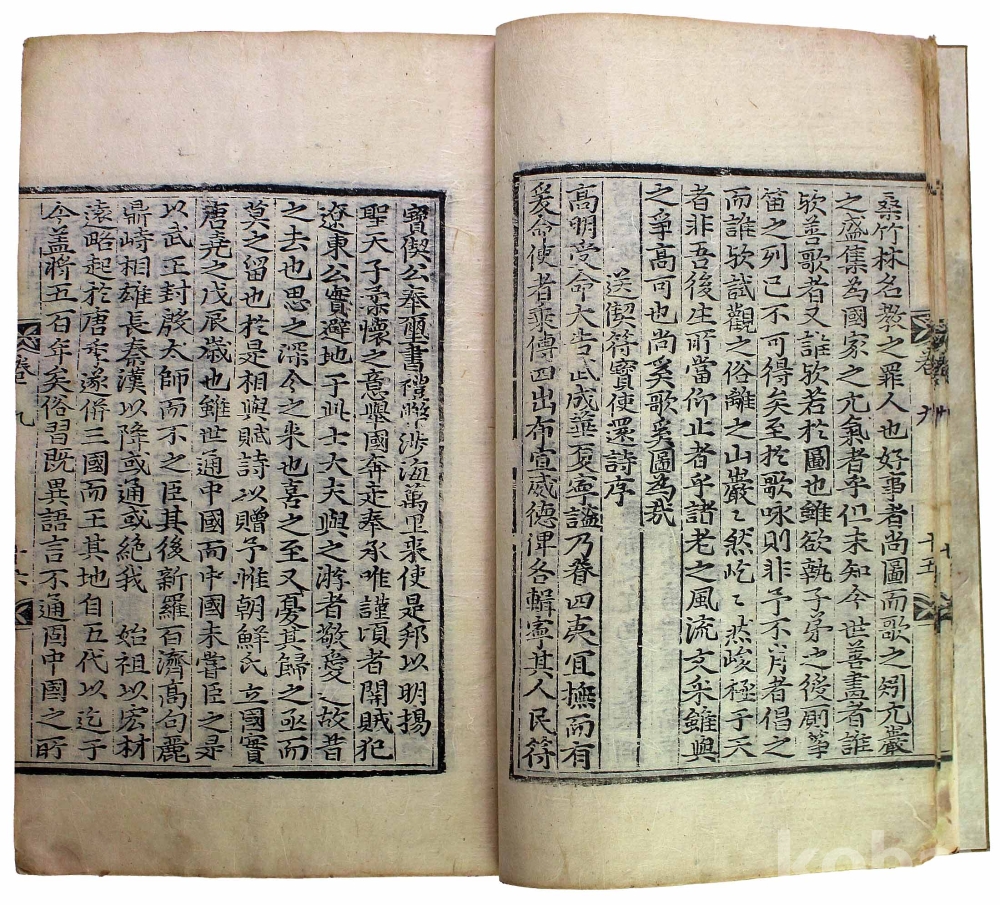 桑竹林名教之罪人也好事者尚圖而歌之矧亢巖
之盛集為國家之元氣者乎但未知今世善畫者誰
欤善歌者又誰欤若於圖也雖欲執子弟之後厠筆
笛之列已不可得矣至於歌咏則非予不肖者倡之
而誰欤試觀之俗離之山巖〻然屹〻然峻極于天
者非吾後生所當仰止者乎諸老之風流文采雖與
之爭高可也尚奚歌奚圖為哉
送偰符寶使還詩序
高明受命大告武成華夏寧謐乃眷四夷宜撫而有
爰命使者乘傳四出布宣威德俾各輯寧其人民符
寶偰公奉璽書禮幣涉海萬里来使是邦以明揚
聖天子柔懷之意擧國奔走奉承唯謹頃者開賊犯
遼東公實避地于此士大夫與之游者敬愛之故昔
之去也思之深今之来也喜之至又憂其歸之亟而
莫之留也於是相與賦詩以贈予惟朝鮮氏立國實
唐堯之戊辰歳也雖世通中國而中國未嘗臣之是
以武王封殷太師而不之臣其後新羅百濟高句麗
鼎峙相雄長秦漢以降或通或絶我 始祖以宏材
遠略起於唐季遂併三國而王其地自五代以迄于
今盖將五百年矣俗習既異語言不通固中國之所
卷九 十六